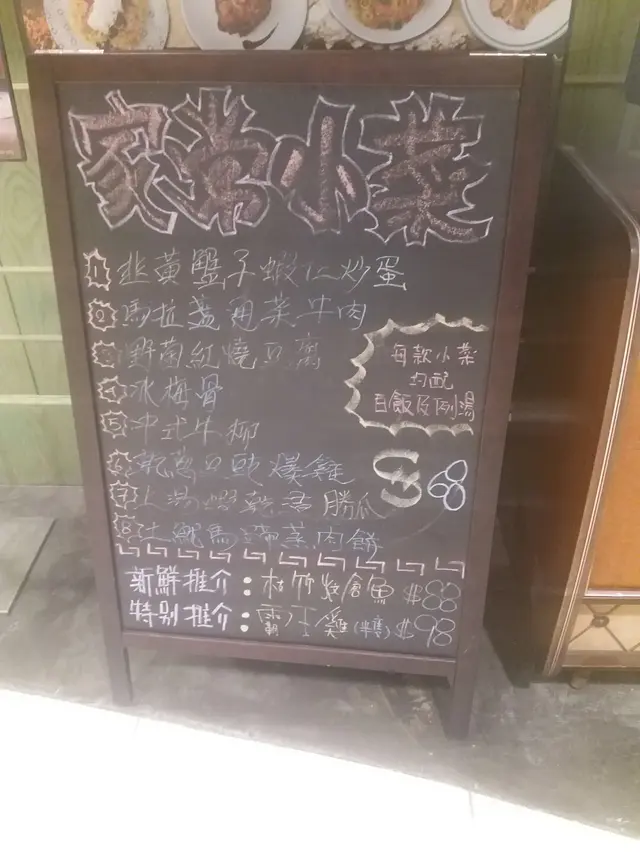 家常小菜
1 韭黃蟹子蝦仁炒蛋
2 馬拉盞通菜牛肉
3 野菌紅燒豆腐
4 冰梅骨
5 中式牛柳
6 乾蔥豆豉爆雞
7 上湯蝦乾浸勝瓜
8 土魷馬蹄蒸肉餅
每款小菜
均配
白飯及例湯
$68
新鮮推介：枝竹炆倉魚 $88
特别推介：霸王雞(半隻) $98